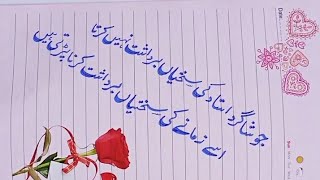 جو شاگرد استاد کی سختیاں برداشت نہیں کرتا
اسے زمانے کی سختیاں برداشت کرنا پڑتی ہیں